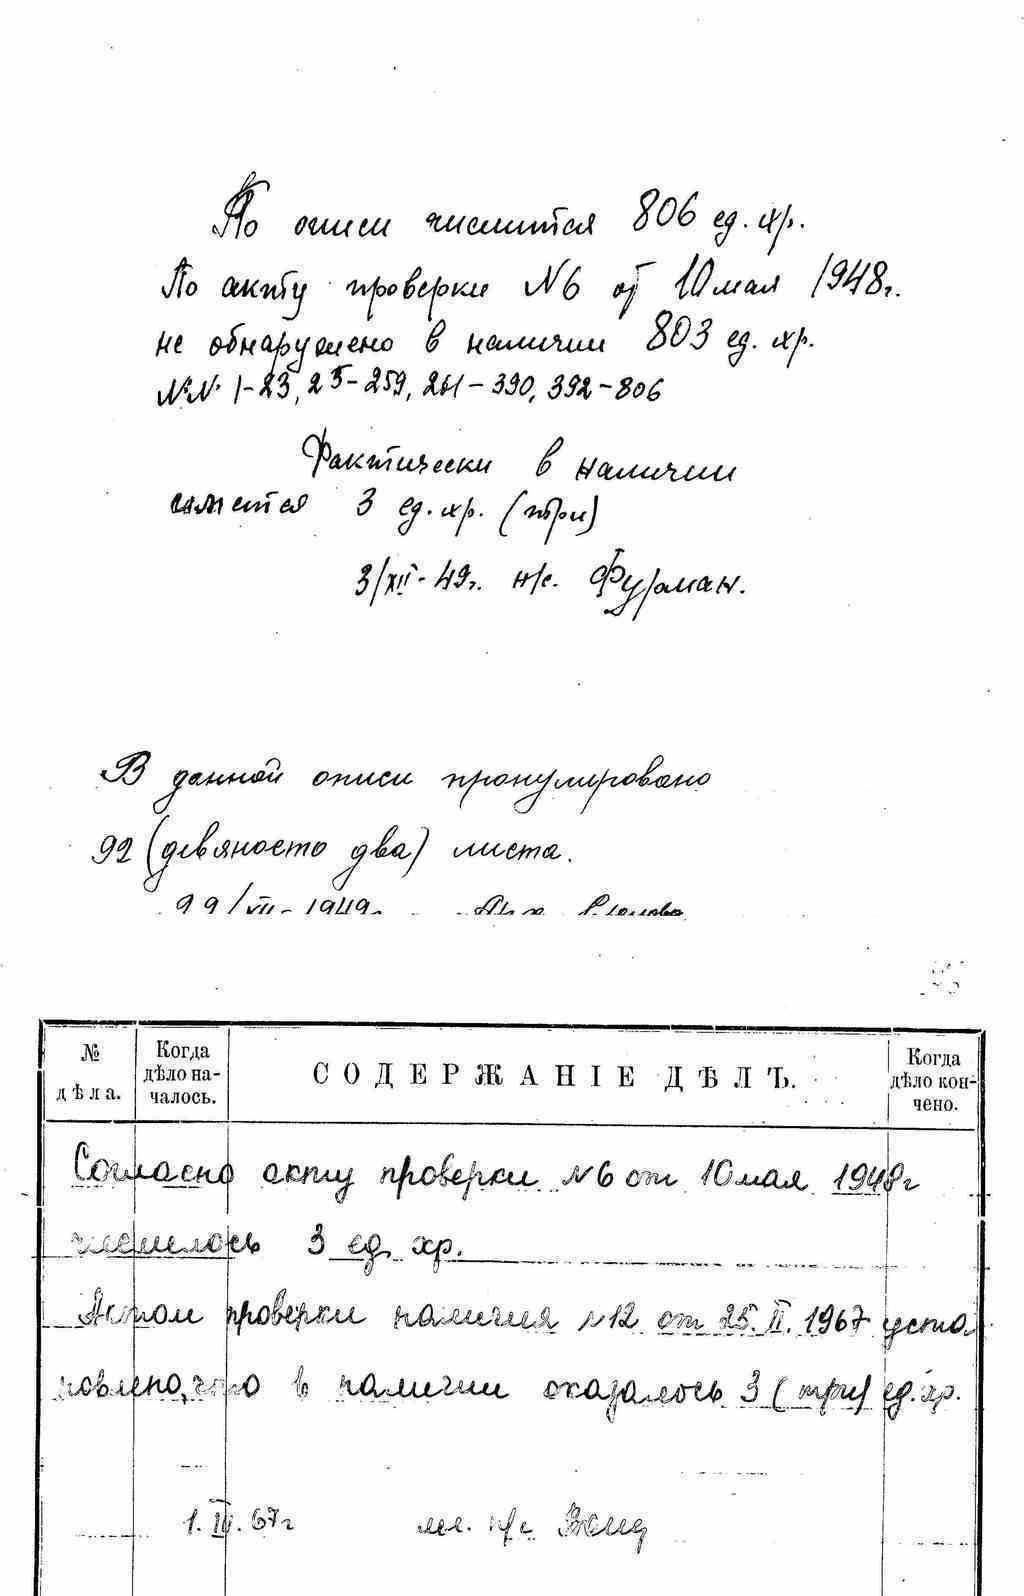 По описи числится 806 ед. хр.
По акту проверки №6 от 10 мая 1948г.
не обнаружено в наличии 803 ед. хр.
№№ 1-23, 25-259, 261-390, 392-806
Фактически в наличии
имеется 3 ед. хр. (три)
3/XII-49г. н/с. Фурман.
В данной описи пронумировано
92 (девяносто два) листа.
/VII-1949г
№ дѣла.
Когда дѣло началось.
СОДЕРЖАНІЕ ДѢЛЪ.
Когда дѣло кончено.
Согласно акту проверки №6 от 10 мая 1948г
числилось 3 ед. хр.
Актом проверки наличия №12 от 25.II.1967 уста
новлено, что в наличии оказалось 3 (три) ед. хр.
1.III.67г мл. н/с